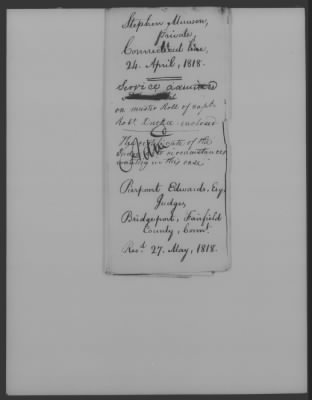 Stephen Munson,
Private,
Connecticut line,
24. April, 1818.
Service examined
on muster Roll of Capt.
Rob.t enclosed
The certificate of the
Judge to circumstances
wanting in this case.
Pierpont Edwards, Esq.
Judge,
Bridgeport, Fairfield
County, Connt.
Rec.d 27. May, 1818.